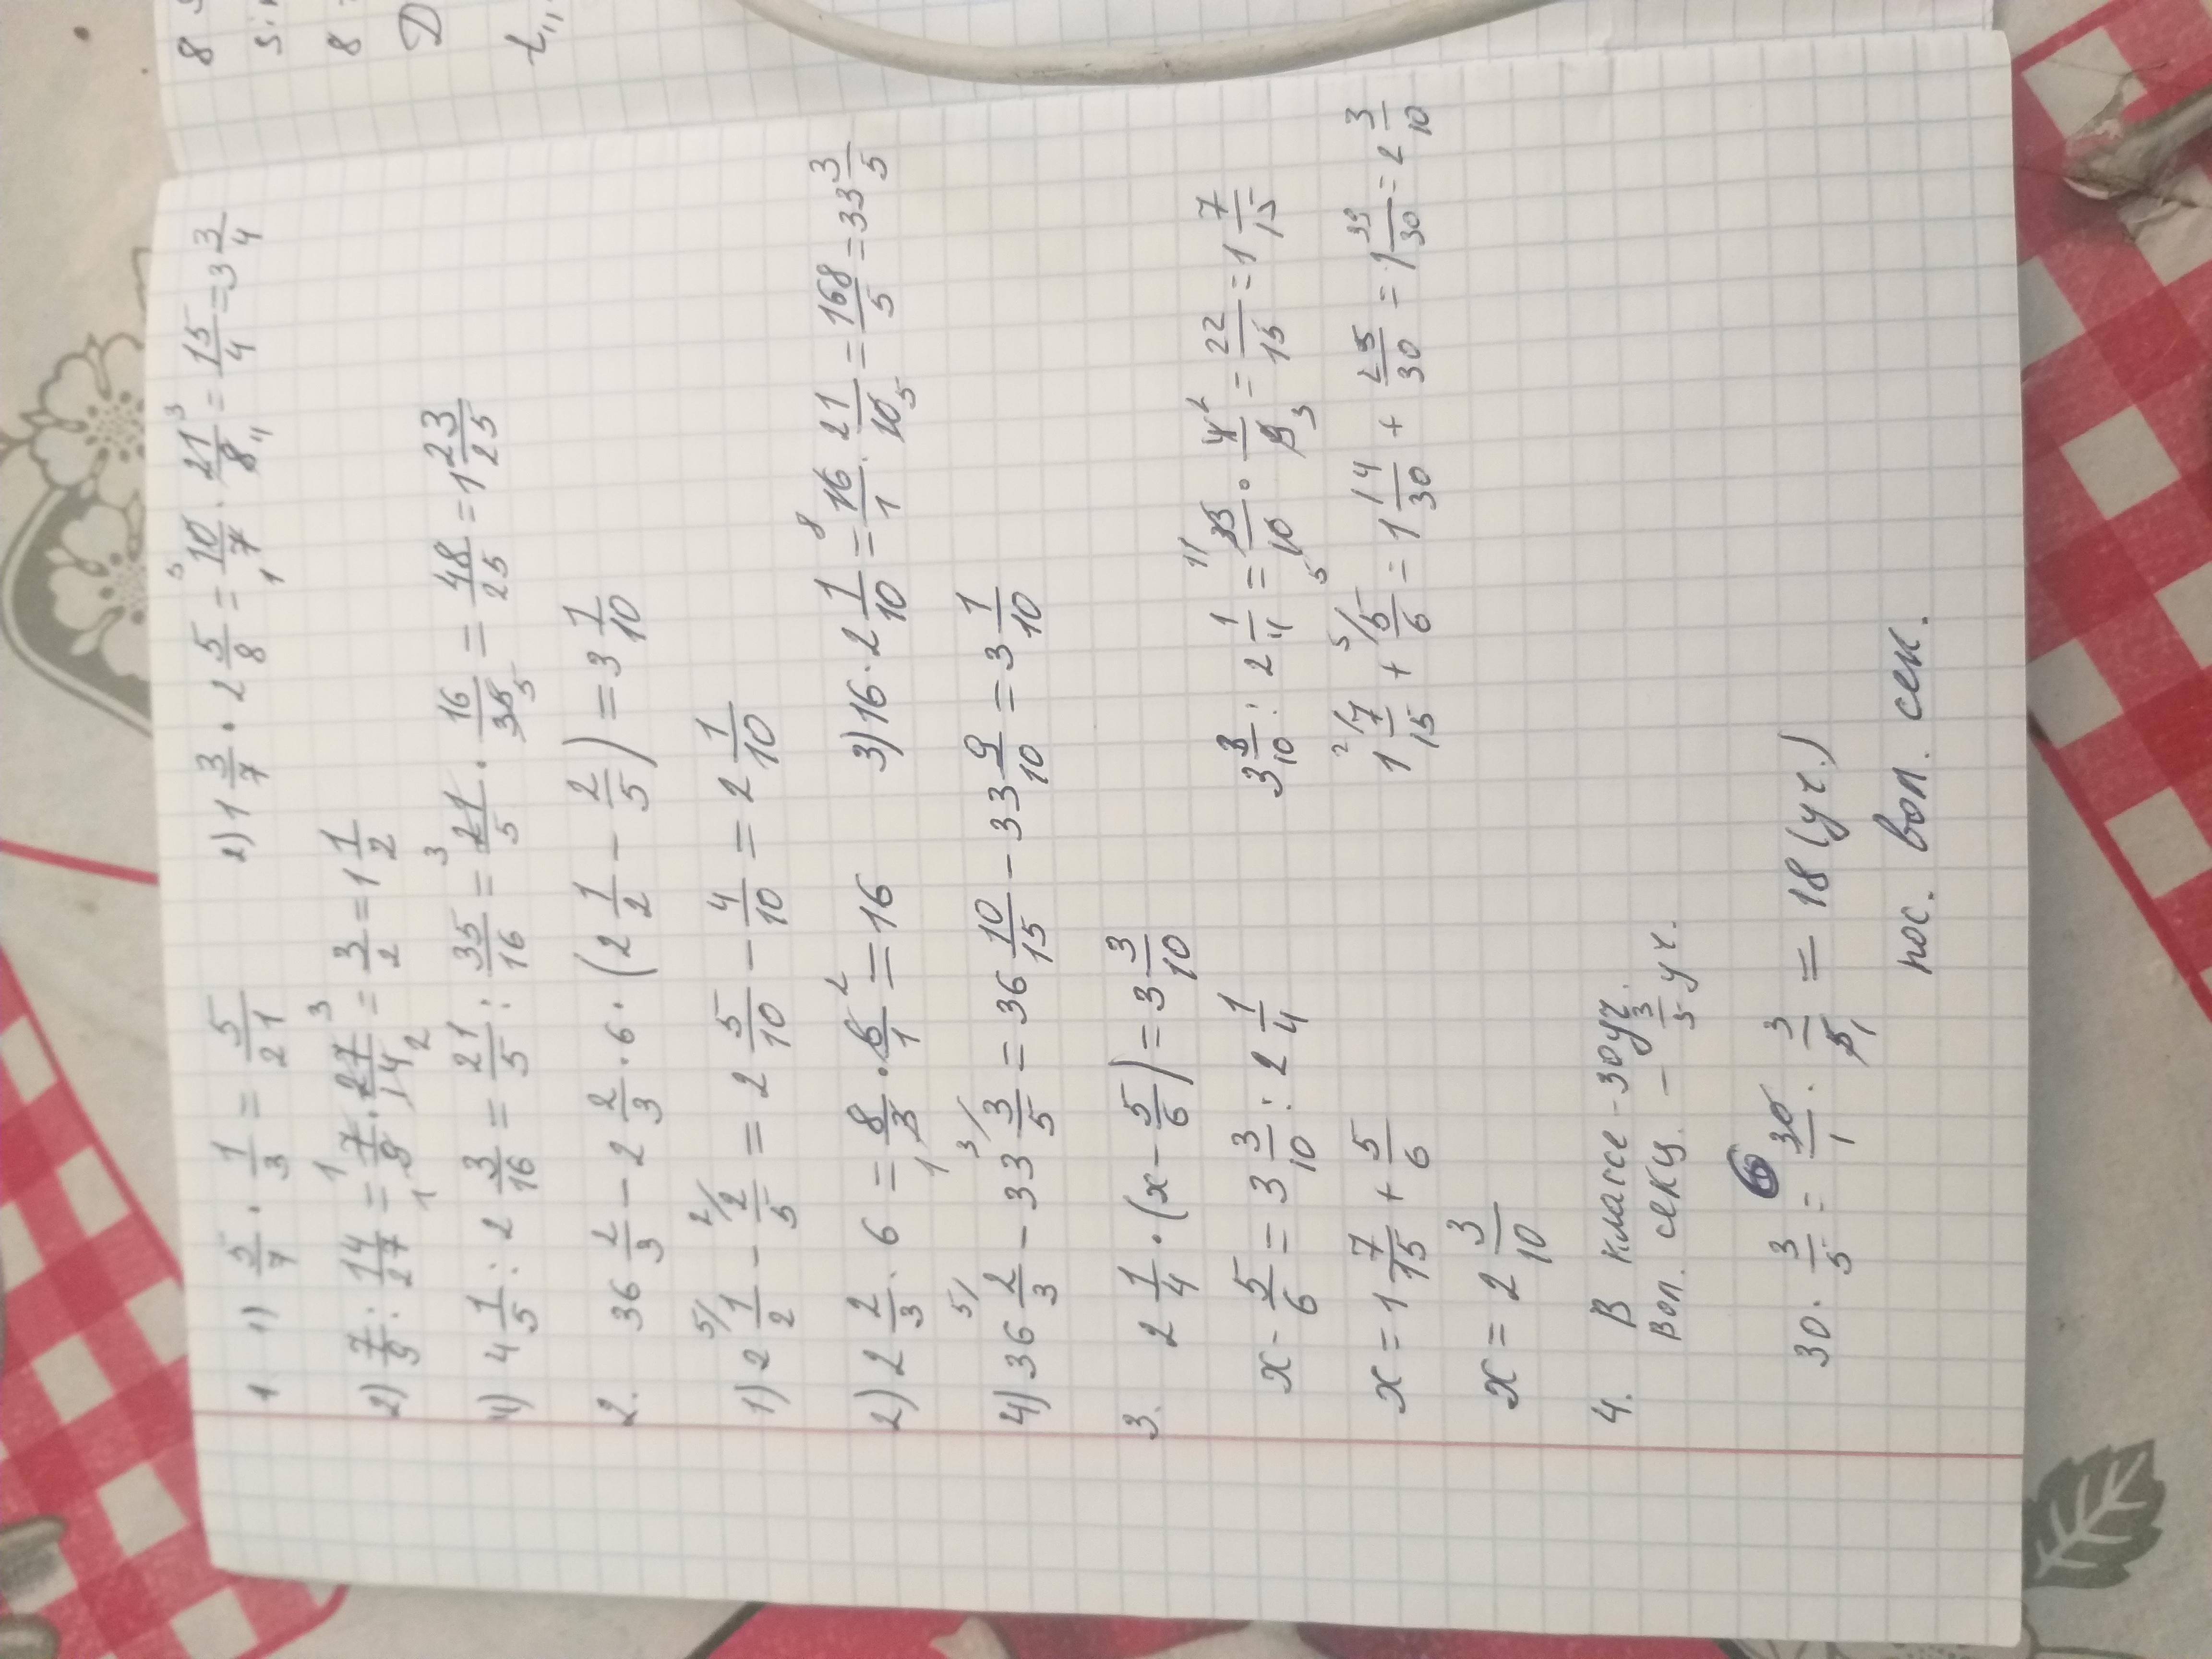 1 1) 5/7 · 1/3 = 5/21 2) 1 3/7 · 2 5/8 = 10/7 · 21/8 = 15/4 = 3 3/4
2) 7/9 : 14/27 = 7/9 · 27/14 = 3/2 = 1 1/2
4) 4 1/5 : 2 3/16 = 21/5 : 35/16 = 21/5 · 16/35 = 48/25 = 1 23/25
2. 36 2/3 - 2 2/3 · 6 · (2 1/2 - 2/5) = 3 1/10
1) 2 1/2 - 2/5 = 2 5/10 - 4/10 = 2 1/10
2) 2 2/3 · 6 = 8/3 · 6/1 = 16 3) 16 · 2 1/10 = 16/1 · 21/10 = 168/5 = 33 3/5
4) 36 2/3 - 33 3/5 = 36 10/15 - 33 9/10 = 3 1/10
3. 2 1/4 · (x - 5/6) = 3 3/10
x - 5/6 = 3 3/10 : 2 1/4 3 3/10 : 2 1/4 = 33/10 · 4/9 = 22/15 = 1 7/15
x = 1 7/15 + 5/6 1 7/15 + 5/6 = 1 14/30 + 25/30 = 1 39/30 = 2 3/10
x = 2 3/10
4. В классе - 30 уч.
Вол. секц. - 3/5 уч.
30 · 3/5 = 30/1 · 3/5 = 18 (уч.)
пос. вол. сек.